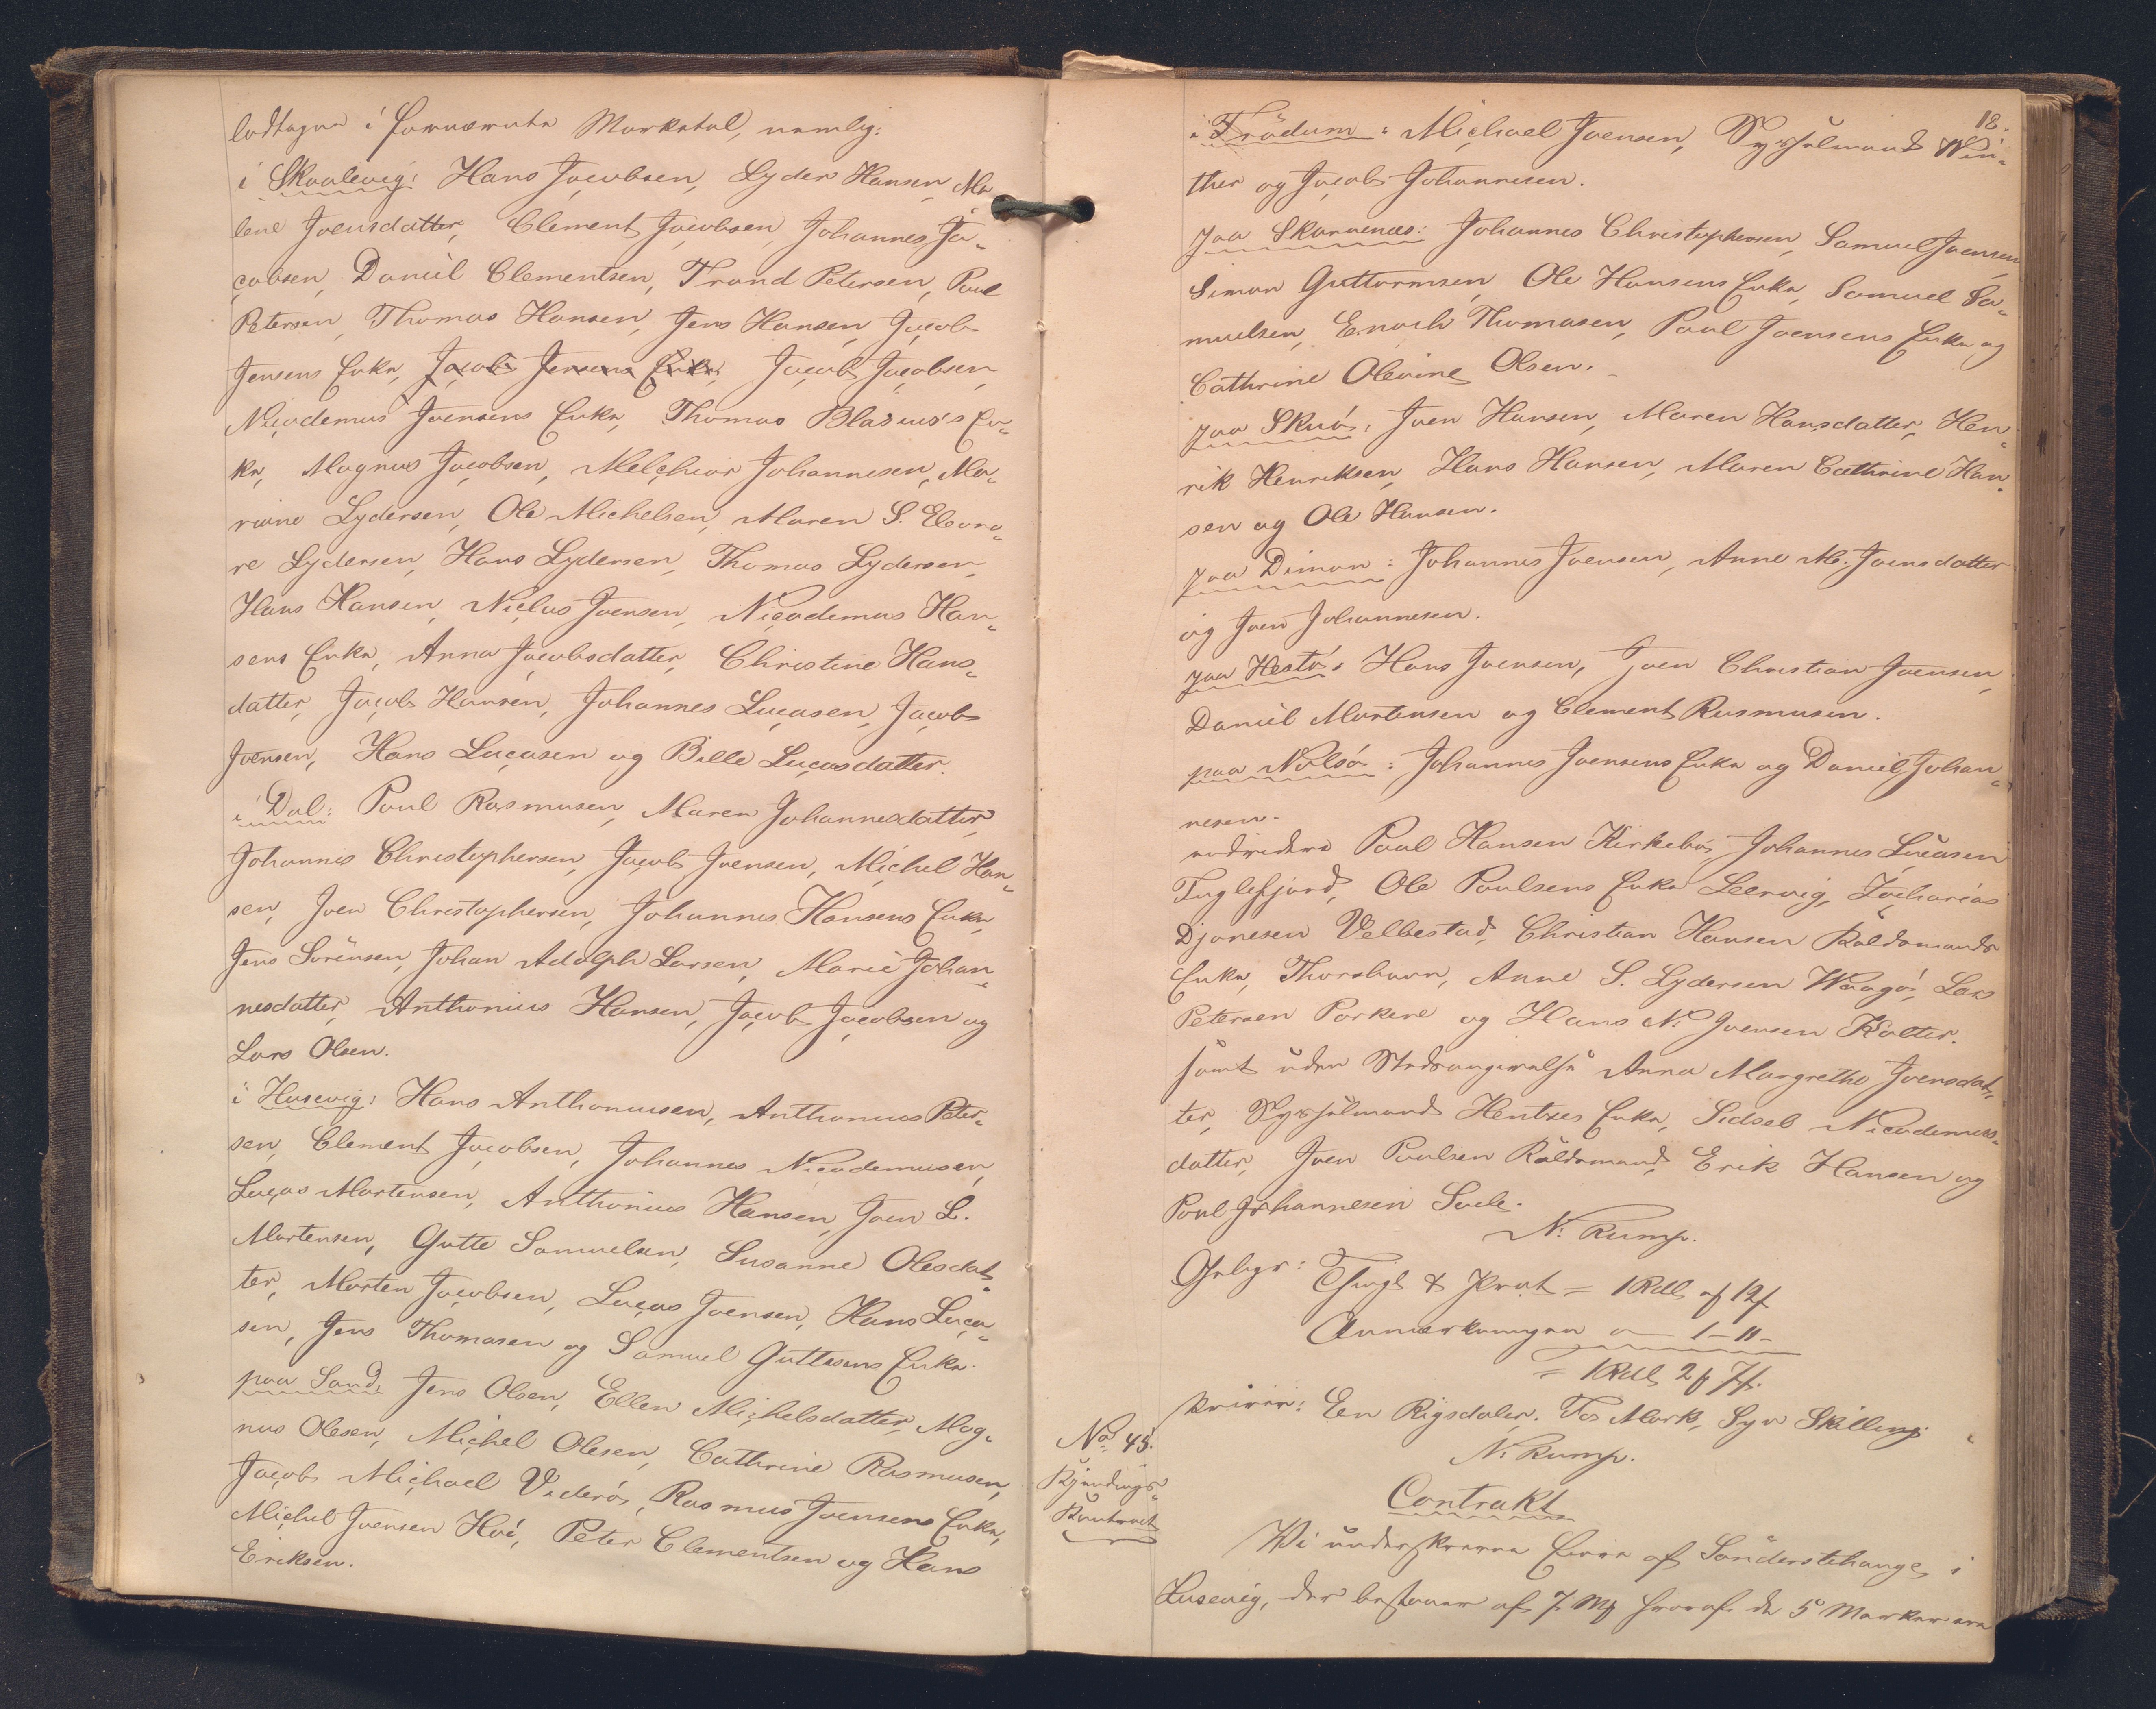 lodtagne i fornævnte Markatal, nemlig:
i Skaalevig: Hans Jacobsen, Lyder Hansen, Ma
lene Joensdatter, Clement Jacobsen, Johannes Ja-
cobsen, Daniel Clementsen, Trond Petersen, Poul
Petersen, Thomas Hansen, Jens Hansen, Jacob
Jensens Enke, Jacob Jensens Enke, Jacob Jacobsen,
Nicodemus Joensens Enke, Thomas Blasius's En-
ke, Magnus Jacobsen, Melchior Johannesen, Ma-
riane Lydersen, Ole Michelsen, Maren S. Eleono-
re Lydersen, Hans Lydersen, Thomas Lydersen,
Hans Hansen, Niclas Joensen, Nicodemus Han-
sens Enke, Anna Jacobsdatter, Christine Hans-
datter, Jacob Hansen, Johannes Lucasen, Jacob
Joensen, Hans Lucasen og Bille Lucasdatter.
i Dal: Poul Rasmusen, Maren Johannesdatter,
Johannes Christophersen, Jacob Joensen, Michel Han-
sen, Joen Christophersen, Johannes Hansens Enke,
Jens Sørensen, Johan Adolph Larsen, Marie Johan-
nesdatter, Anthonius Hansen, Jacob Jacobsen og
Lars Olsen.
i Husevig: Hans Anthoniusen, Anthonius Peter-
sen, Clement Jacobsen, Johannes Nicodemusen,
Lucas Mortensen, Anthonius Hansen, Joen L.
Mortensen, Gutte Samuelsen, Susanne Olesdat-
ter, Morten Jacobsen, Lucas Joensen, Hans Luca-
sen, Jens Thomasen og Samuel Guttesens Enke.
paa Sand: Jens Olsen, Ellen Michelsdatter, Mag-
nus Olesen, Michel Olesen, Cathrine Rasmusen,
Jacob Michael Viderø, Rasmus Joensens Enke,
Michel Joensen Høi, Peter Clementsen og Hans
Eriksen.
18.
i Trödum: Michael Joensen, Sysselmand Win-
ther og Jacob Johannesen.
paa Skarvenæs: Johannes Christophersen, Samuel Joensen,
Simon Guttormsen, Ole Hansens Enke, Samuel Sa-
muelsen, Enoch Thomasen, Poul Joensens Enke og
Cathrine Olevine Olsen.
paa Skuø: Joen Hansen, Maren Hansdatter, Hen-
rik Henriksen, Hans Hansen, Maren Cathrine Han-
sen og Ole Hansen.
paa Dimon: Johannes Joensen, Anne M. Joensdatter
og Joen Johannesen.
paa Hestø: Hans Joensen, Joen Christian Joensen,
Daniel Mortensen og Clement Rasmusen.
paa Nolsø: Johannes Joensens Enke og Daniel Johan-
nesen.
endvidere Poul Hansen Kirkebø, Johannes Lucasen
Fuglefjord, Ole Poulsens Enke Leervig, Zacharias
Djonesen Velbestad, Christian Hansen Raldsmands
Enke, Thorshavn, Anne S. Lydersen Waagø, Lars
Petersen Porkere og Hans N. Joensen Kolter.
samt uden Stedsangivelse Anna Margrethe Joensdat-
ter, Sysselmand Hentzes Enke, Sidsel Nicodemus-
datter, Joen Poulsen Raldsmand, Erik Hansen og
Poul Johannesen Sule.
N. Rump.
Gebyr: Thingl. & Prot = 1 Rdl. 1 ƒ 12 ƒ
Anmærkningen 1 - 11 -
= 1 Rdl. 2 ƒ 7 ƒ.
skriver: Een Rigsdaler. To Mark, Syv Skilling.
N. Rump.
No 43.
Kjendings-
Contract
Contrakt
Vi underskrevne Eiere af Sönderstehauge, i
Husevig, der bestaaer af 7 Mk hvoraf de 5 Marker ere